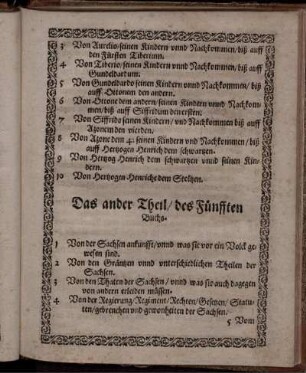 3 Von Aurelio/seinen Kindern vnnd Nachkommen/biß auff
den Fürsten Tiberium.
4 Von Tiberio/seinen Kindern vnnd Nachkommen/biß auff
Gundelbardum.
5 Von Gundelbardo seinen Kindern vnnd Nachkommen/biß
auff Ottonem den andern.
6 Von Ottone dem andern/seinen Kindern vnnd Nachkom-
men/biß auff Siffridum den ersten.
7 Von Siffrido seinen Kindern/vnd Nachkommen biß auff
Azonem den vierdten.
8 Von Azone dem 4: seinen Kindern vnd Nachkommen/biß
auff Hertzogen Henrich dem schwartzen.
9 Von Hertzog Henrich dem schwartzen vnnd seinen Kin-
dern.
10 Von Hertzogen Henrich dem Stoltzen.
Das ander Theil/des Fünfften
Buchs.
1 Von der Sachsen ankunfft/vnnd was sie vor ein Volck ge-
wesen sind.
2 Von den Gräntzen vnnd vnterschiedlichen Theilen der
Sachsen.
3 Von den Thaten der Sachsen/vnnd was sie auch dagegen
von andern erleiden müssen.
4 Von der Regierung/Regiment/Rechten/Gesetzen/Statu-
ten/gebreuchen vnd gewonheiten der Sachsen.
5 Vom